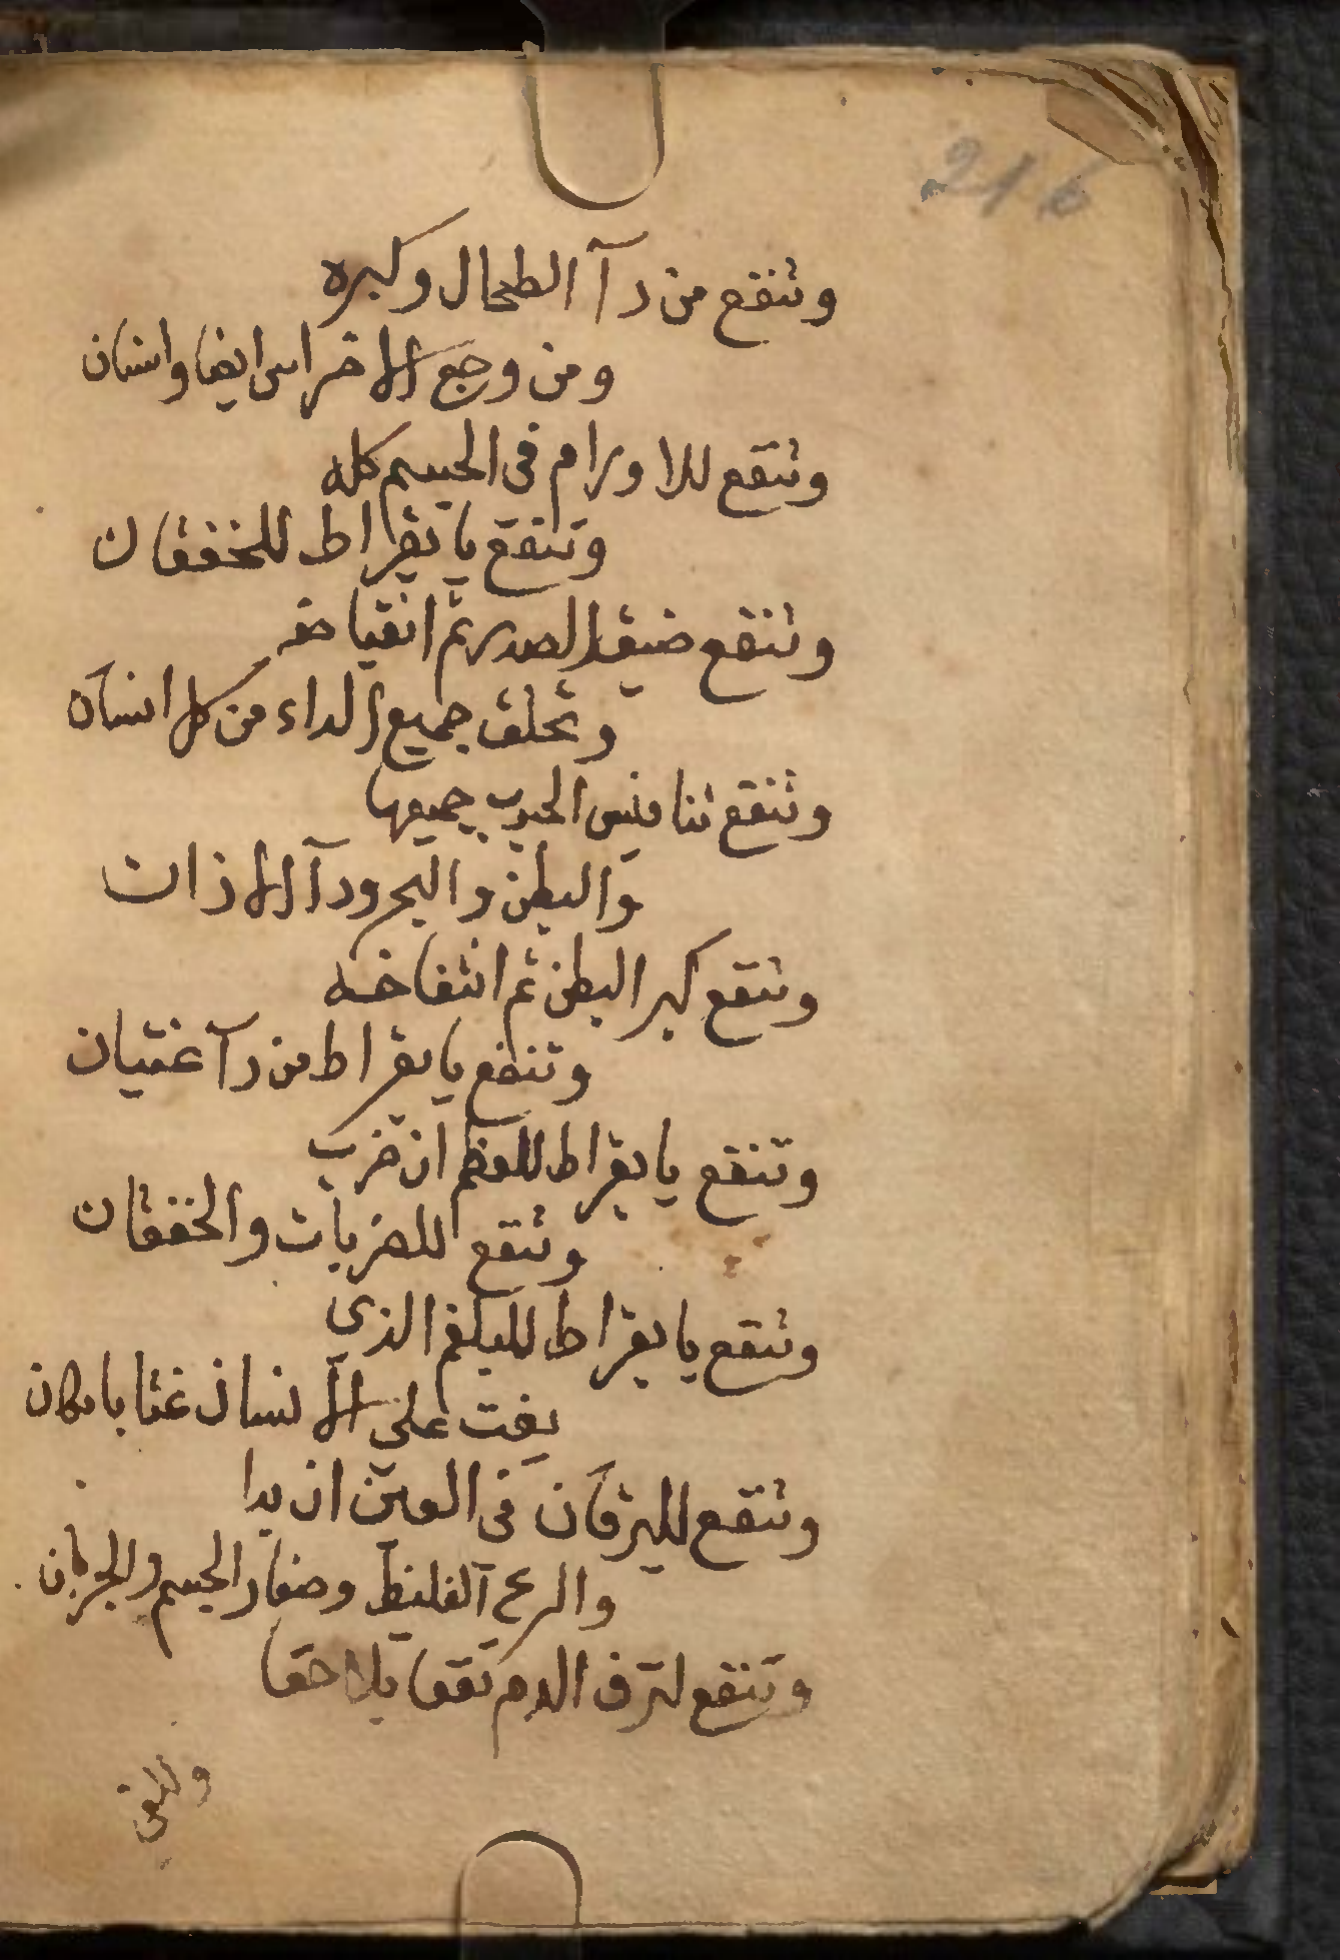 216
وتنفع من دآ الطحال وكبره
ومن وجع الاضراس ايضا واسنان
وتنفع للاورام في الجسم كله
وتنفع يا بقراط للخفقان
وتنفع ضيق الصدر ثم انقباضه
وتحلق جميع الداء من كل انسان
وتنفع تنافيس الحدب جميعها
والبطن والبحر ودآ الاذان
وتنفع كبر البطن ثم انتفاخه
وتنفع يا بقراط من دآ غثيان
وتنفع يا بقراط للعظم ان ضرب
وتنفع للضربات والخفقان
وتنفع يا بقراط للبلغم الذي
على الانسان غثا بامكان
وتنفع لليرقان في العين ان بدا
والريح الغليظ وصفار الجسم والجربان
وتنفع لنزف الدم نفعا بلا خفا